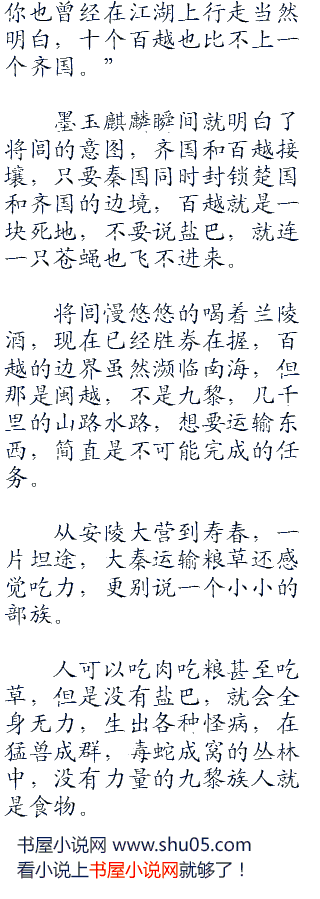 你也曾经在江湖上行走当然
明白，十个百越也比不上一
个齐国。”
墨玉麒麟瞬间就明白了
将闾的意图，齐国和百越接
壤，只要秦国同时封锁楚国
和齐国的边境，百越就是一
块死地，不要说盐巴，就连
一只苍蝇也飞不进来。
将闾慢悠悠的喝着兰陵
酒，现在已经胜券在握，百
越的边界虽然濒临南海，但
那是闽越，不是九黎，几千
里的山路水路，想要运输东
西，简直是不可能完成的任
务。
从安陵大营到寿春，一
片坦途，大秦运输粮草还感
觉吃力，更别说一个小小的
部族。
人可以吃肉吃粮甚至吃
草，但是没有盐巴，就会全
身无力，生出各种怪病，在
猛兽成群，毒蛇成窝的丛林
中，没有力量的九黎族人就
是食物。
书屋小说网 www.shu05.com
看小说上书屋小说网就够了！